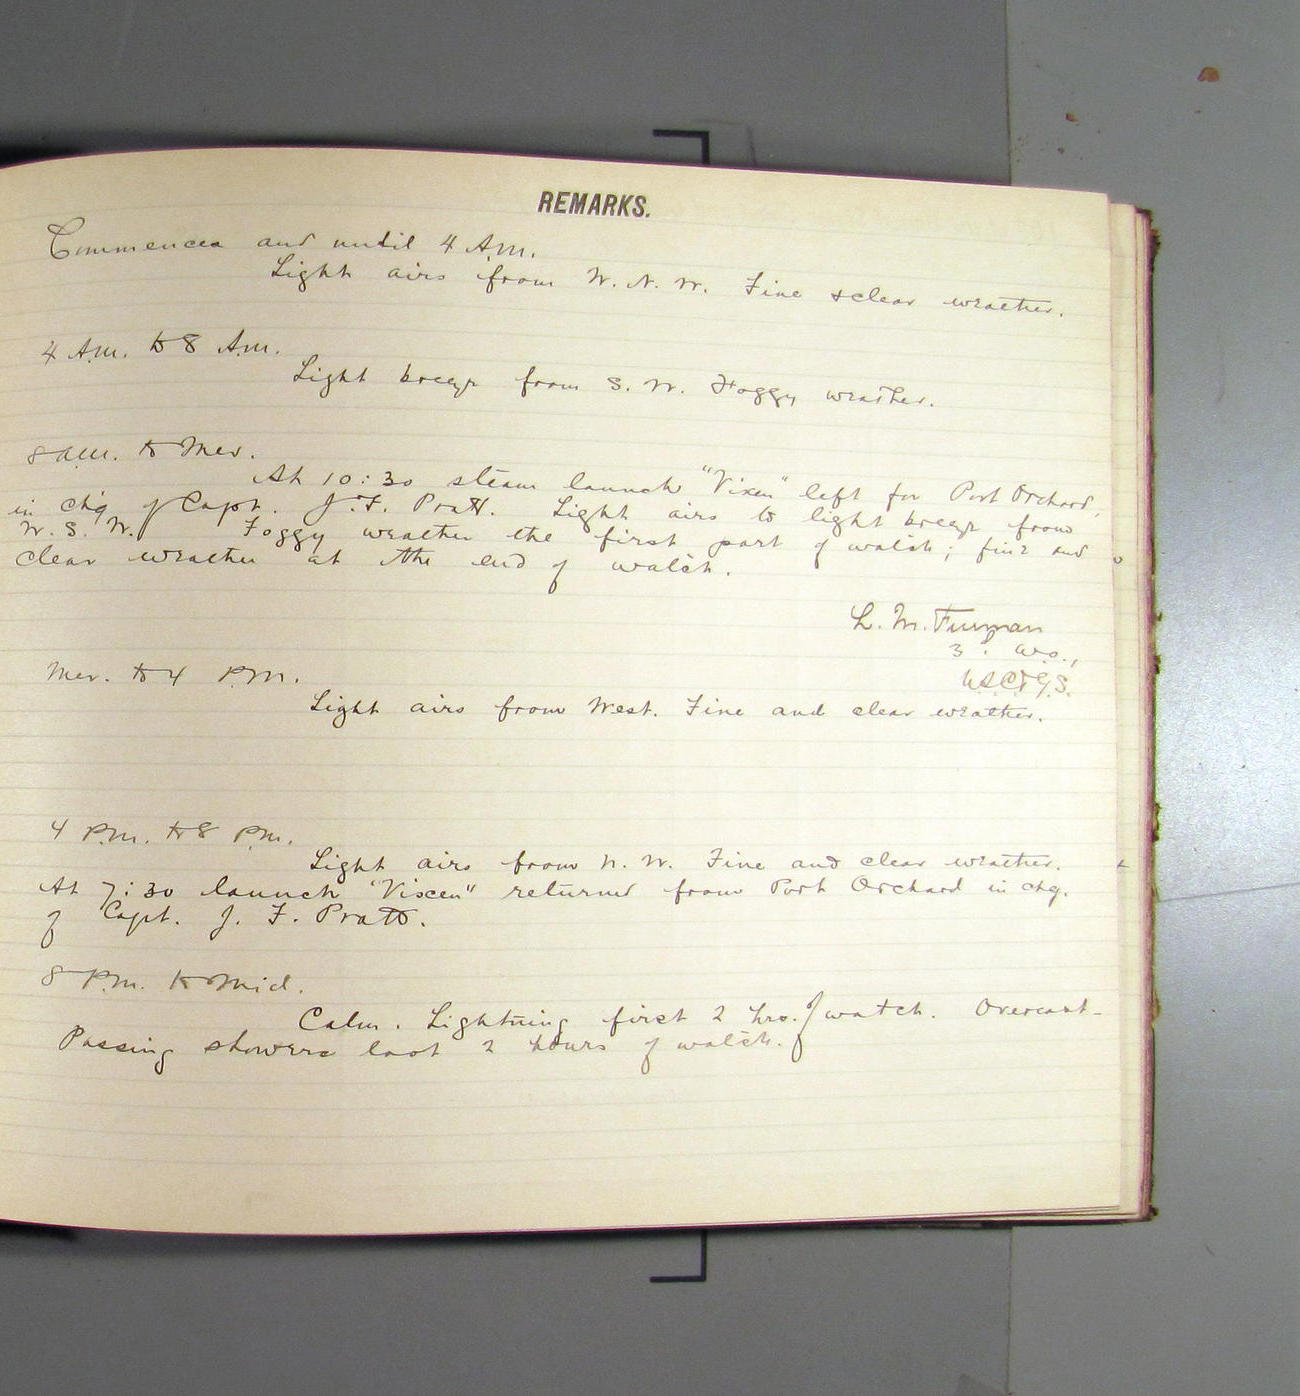 REMARKS.
Commences and until 4 A.M.
Light airs from W. N. W. Fine & clear weather.
4 A.M. to 8 A.M.
Light breeze from S. W. Foggy weather.
8 a.m. to Mer.
At 10:30 steam launch "Vixen" left for Port Orchard,
in chg of Capt. J. F. Pratt. Light airs to light breeze from
W. S. W. Foggy weather the first part of watch; fine and
clear weather at the end of watch.
L. M. Furman
3d W.O.,
USC&GS.
Mer. to 4 P.M.
Light airs from West. Fine and clear weather.
4 P.M. to 8 P.M.
Light airs from N. W. Fine and clear weather.
At 7:30 launch "Vixen" returned from Port Orchard in chg.
of Capt. J. F. Pratt.
8 P.M. to Mid.
Calm. Lightning first 2 hrs. of watch. Overcast-
Passing showers last 2 hours of watch.